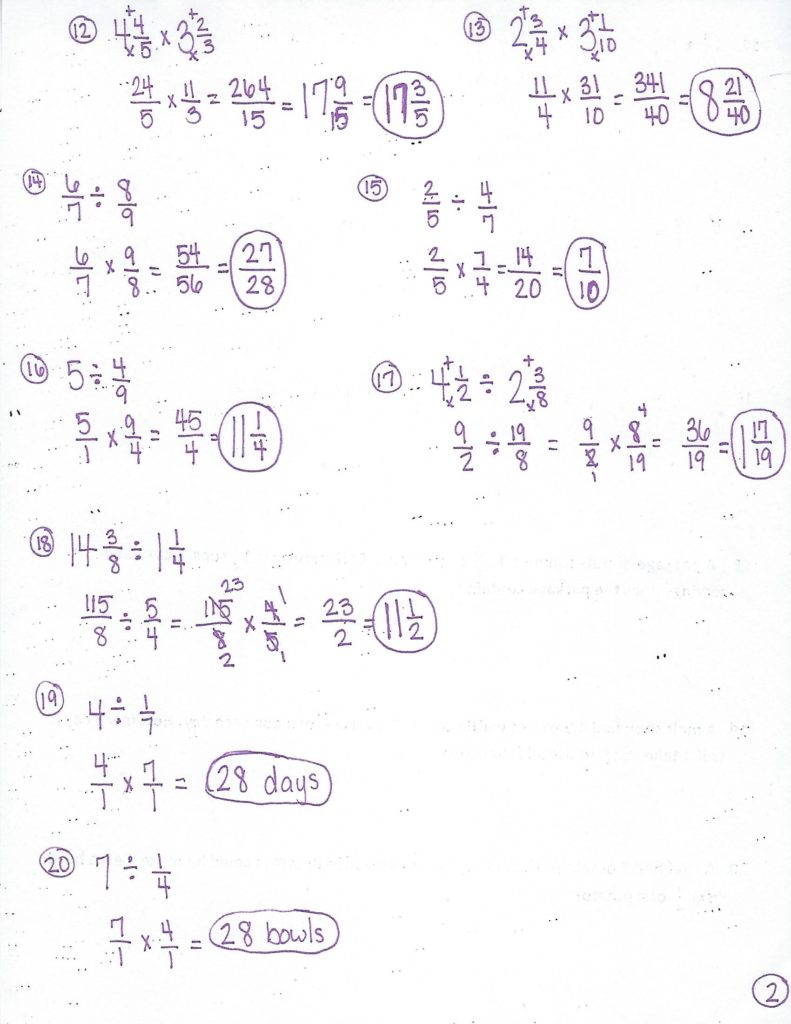 ⑫ 4 4/5 × 3 2/3
24/5 × 11/3 = 264/15 = 17 9/15 = 17 3/5
⑬ 2 3/4 × 3 1/10
11/4 × 31/10 = 341/40 = 8 21/40
⑭ 6/7 ÷ 8/9
6/7 × 9/8 = 54/56 = 27/28
⑮ 2/5 ÷ 4/7
2/5 × 7/4 = 14/20 = 7/10
⑯ 5 ÷ 4/9
5/1 × 9/4 = 45/4 = 11 1/4
⑰ 4 1/2 ÷ 2 3/8
9/2 ÷ 19/8 = 9/2 × 8/19 = 36/19 = 1 17/19
⑱ 14 3/8 ÷ 1 1/4
115/8 ÷ 5/4 = 115/8 × 4/5 = 23/2 = 11 1/2
⑲ 4 ÷ 1/7
4/1 × 7/1 = 28 days
⑳ 7 ÷ 1/4
7/1 × 4/1 = 28 bowls
2